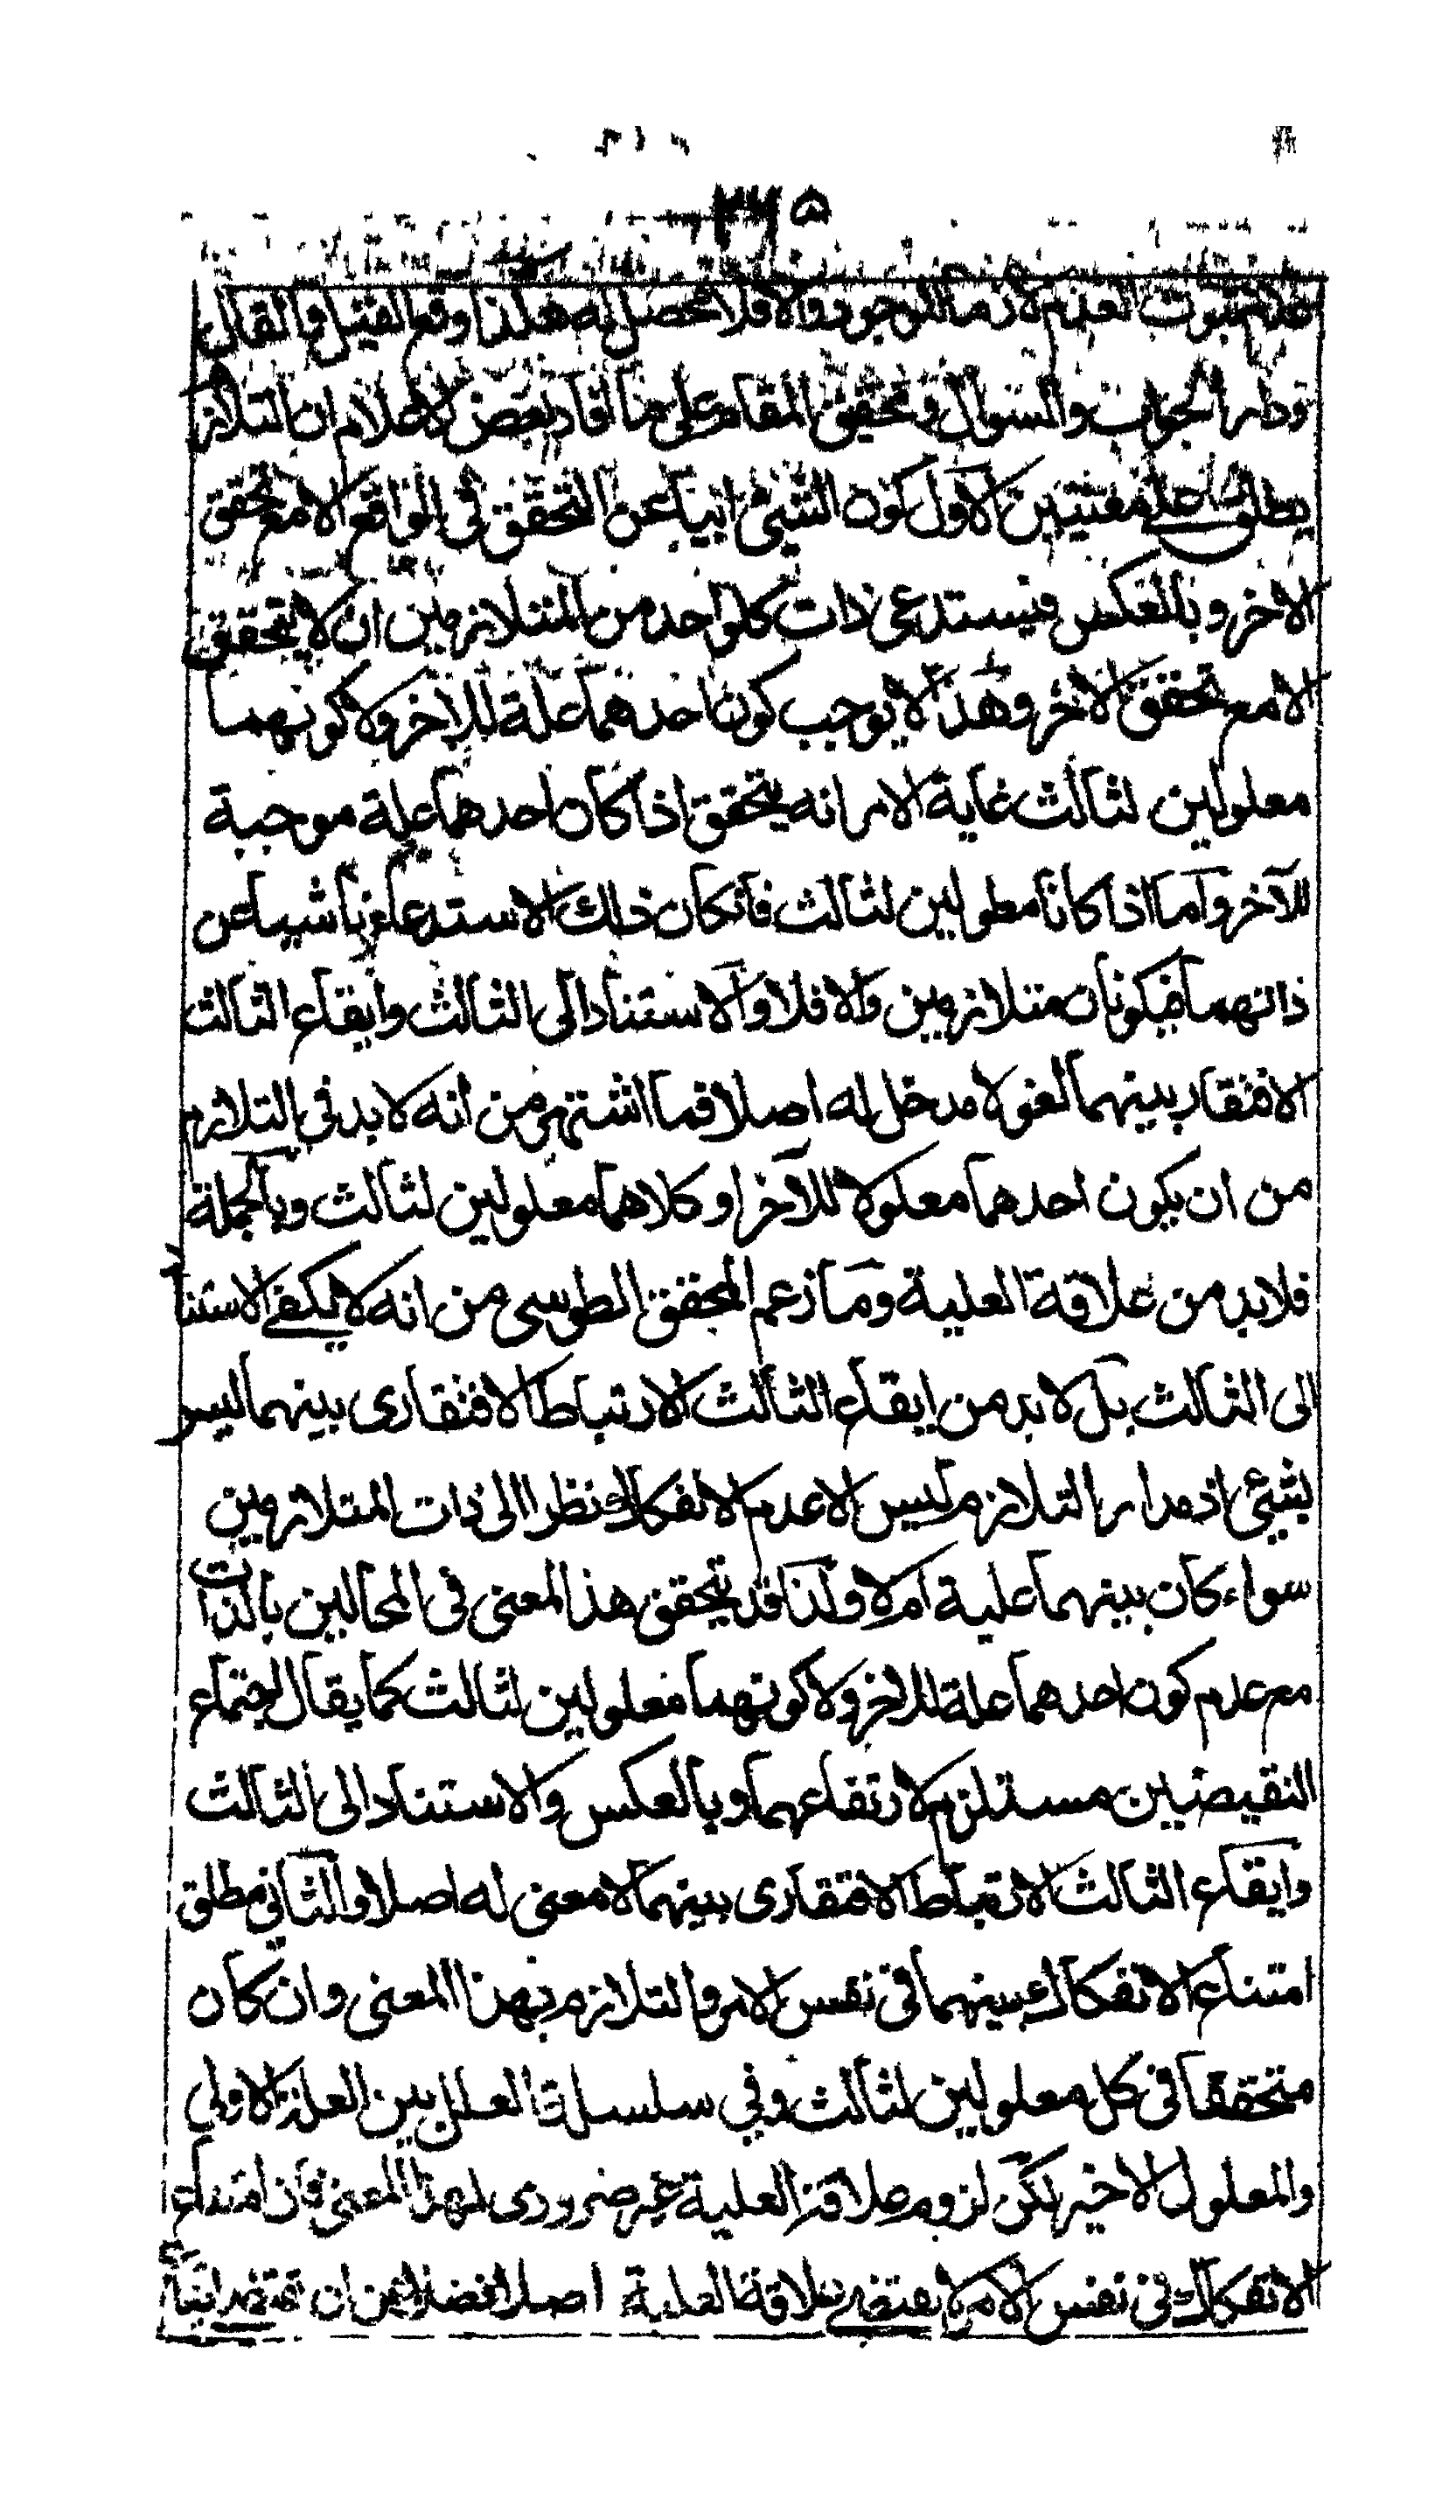 ٢٦٥
ثبوت العدم لازما للوجود والا فلا محصل له هكذا وقع القيل والقال
ودار الجواب والسوال وتحقيق المقام على ما افاد بعض الاعلام ان التلازم
يطلق على معنيين الاول كون الشيئ ابيا عن التحقق فى الواقع الا مع تحقق
الاخر وبالعكس فيستدعى ذات كلواحد من المتلازمين ان لا يتحقق
الا مع تحقق الاخر وهذا لا يوجب كون احدهما علة للاخر ولا كونهما
معلولين لثالث غاية الامر انه يتحقق اذا كان احدهما علة موجبة
للآخر واما اذا كانا معلولين لثالث فانكان ذلك الاستدعاء ناشيا عن
ذاتهما فيكونان متلازمين والا فلا والاستناد الى الثالث وايقاع الثالث
الافتقار بينهما لغو لا مدخل له اصلا فما اشتهر من انه لا بد فى التلازم
من ان يكون احدهما معلولا للآخر او كلاهما معلولين لثالث وبالجملة
فلا بد من علاقة العلية وما زعم المحقق الطوسى من انه لا يكفے الاستناد
الى الثالث بل لا بد من ايقاع الثالث الارتباط الافتقارى بينهما ليس
بشيئ اذ مدار التلازم ليس الا عدم الانفكاك نظرا الى ذات المتلازمين
سواء كان بينهما علية ام لا ولذا قد يتحقق هذا المعنى فى المحالين بالذات
مع عدم كون احدهما علة للاخر ولا كونهما معلولين لثالث كما يقال اجتماع
النقيضين مستلزم لارتفاعهما وبالعكس والاستناد الى الثالث
وايقاع الثالث الارتباط الافتقارى بينهما لا معنى له اصلا والثانى مطلق
امتناع الانفكاك بينهما فى نفس الامر والتلازم بهذا المعنى وان كان
متحققا فى كل معلولين لثالث وفي سلسلة العلل بين العلة الاولى
والمعلول الاخير لكن لزوم علاقة العلية غير ضرورى لهذا المعنى فان امتناع
الانفكاك فى نفس الامر لا يقتضے علاقة العلية اصلا فضلا عن ان تقتضے